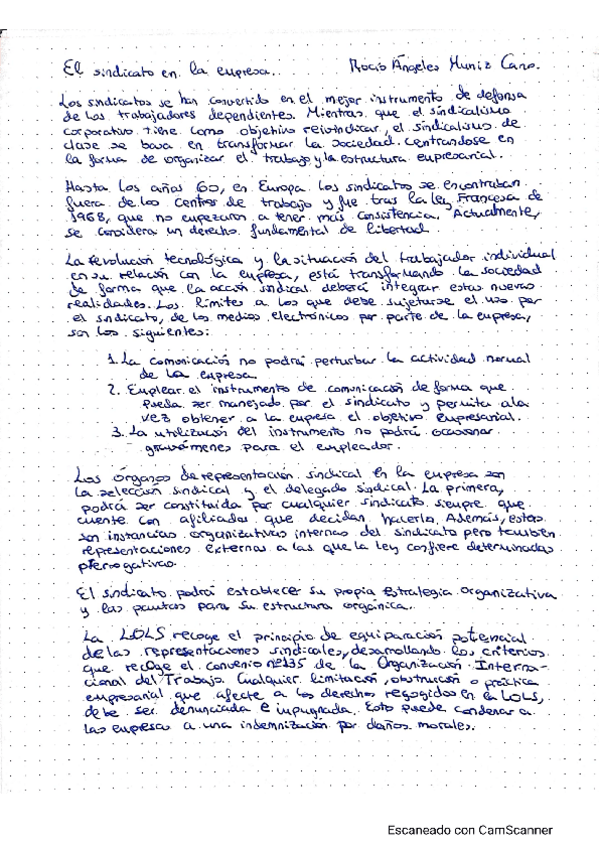 El sindicato en la empresa. Rocío Ángeles Muniz Cano.
Los sindicatos se han convertido en el mejor instrumento de defensa
de los trabajadores dependientes. Mientras que el sindicalismo
corporativo tiene como objetivo reivindicar, el sindicalismo de
clase se basa en transformar la sociedad centrandose en
la forma de organizar el trabajo y la estructura empresarial.
Hasta los años 60, en Europa los sindicatos se encontraban
fuera de los centros de trabajo y fue tras la ley Francesa de
1968, que no empezaron a tener más consistencia. Actualmente,
se considera un derecho fundamental de libertad.
La revolución tecnológica y la situación del trabajador individual
en su relación con la empresa, está transformando la sociedad
de forma que la acción sindical deberá integrar estas nuevas
realidades. Los límites a los que debe sujetarse el uso por
el sindicato, de los medios electrónicos por parte de la empresa,
son los siguientes:
1. La comunicación no podrá perturbar la actividad normal
de la empresa
2. Emplear el instrumento de comunicación de forma que
pueda ser manejado por el sindicato y permita a la
vez obtener a la empresa el objetivo empresarial.
3. La utilización del instrumento no podrá ocasionar
gravámenes para el empleador.
Los órganos de representación sindical en la empresa son
la selección sindical y el delegado sindical. La primera,
podrá ser constituida por cualquier sindicato siempre que
cuente con afiliados que decidan hacerlo. Además, estas
son instancias organizativas internas del sindicato pero también
representaciones externas a las que la ley confiere determinadas
prerrogativas.
El sindicato podrá establecer su propia estrategia organizativa
y las pautas para su estructura orgánica.
La LOLS recoge el principio de equiparación potencial
de las representaciones sindicales, desarrollando los criterios
que recoge el convenio nº135 de la Organización Interna-
cional del Trabajo. Cualquier limitación, obstrucción o práctica
empresarial que afecte a los derechos recogidos en la LOLS,
debe ser denunciada e impugnada. Esto puede condenar a
las empresas a una indemnización por daños morales.
Escaneado con CamScanner